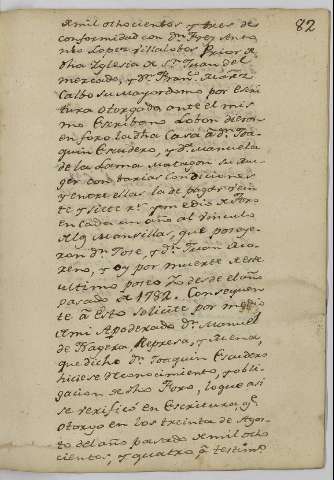 82
de mil ochocientos y tres de
conformidad con Dn. Fray Anto
nio Lopez Villalobos Prior de
dha Iglesia de Sn. Juan del
mercado, y Dn. Franco. Alvarez
Calbo su Mayordomo por escri
tura otorgada ante el mis
mo Escribano Lobon dieron
en foro la dha Casa a Dn. Joa
quin Escudero, y Da. Manuela
de la Lama Matagon su mu
ger con barias condiciones
y entre ellas la de pagar vein
te y siete rs. y medio de foro
en cada un año al vinculo
de los Mansilla, que poseye
ron Dn. Jose, y Dn. Juan
y oy por muerte de este
ultimo poseo yo desde el año
pasado de 1782. Consequen
te a esto solicite por medio
de mi Apoderado Dn. Manuel
de Represa, y
que dicho Dn. Joaquin Escudero
hiciese reconocimiento, y obli
gacion de dho foro, lo que asi
se verificó en Escritura, qe.
otorgo en los treinta de Agos
to del año pasado de mil ocho
cientos, y quatro a testimo